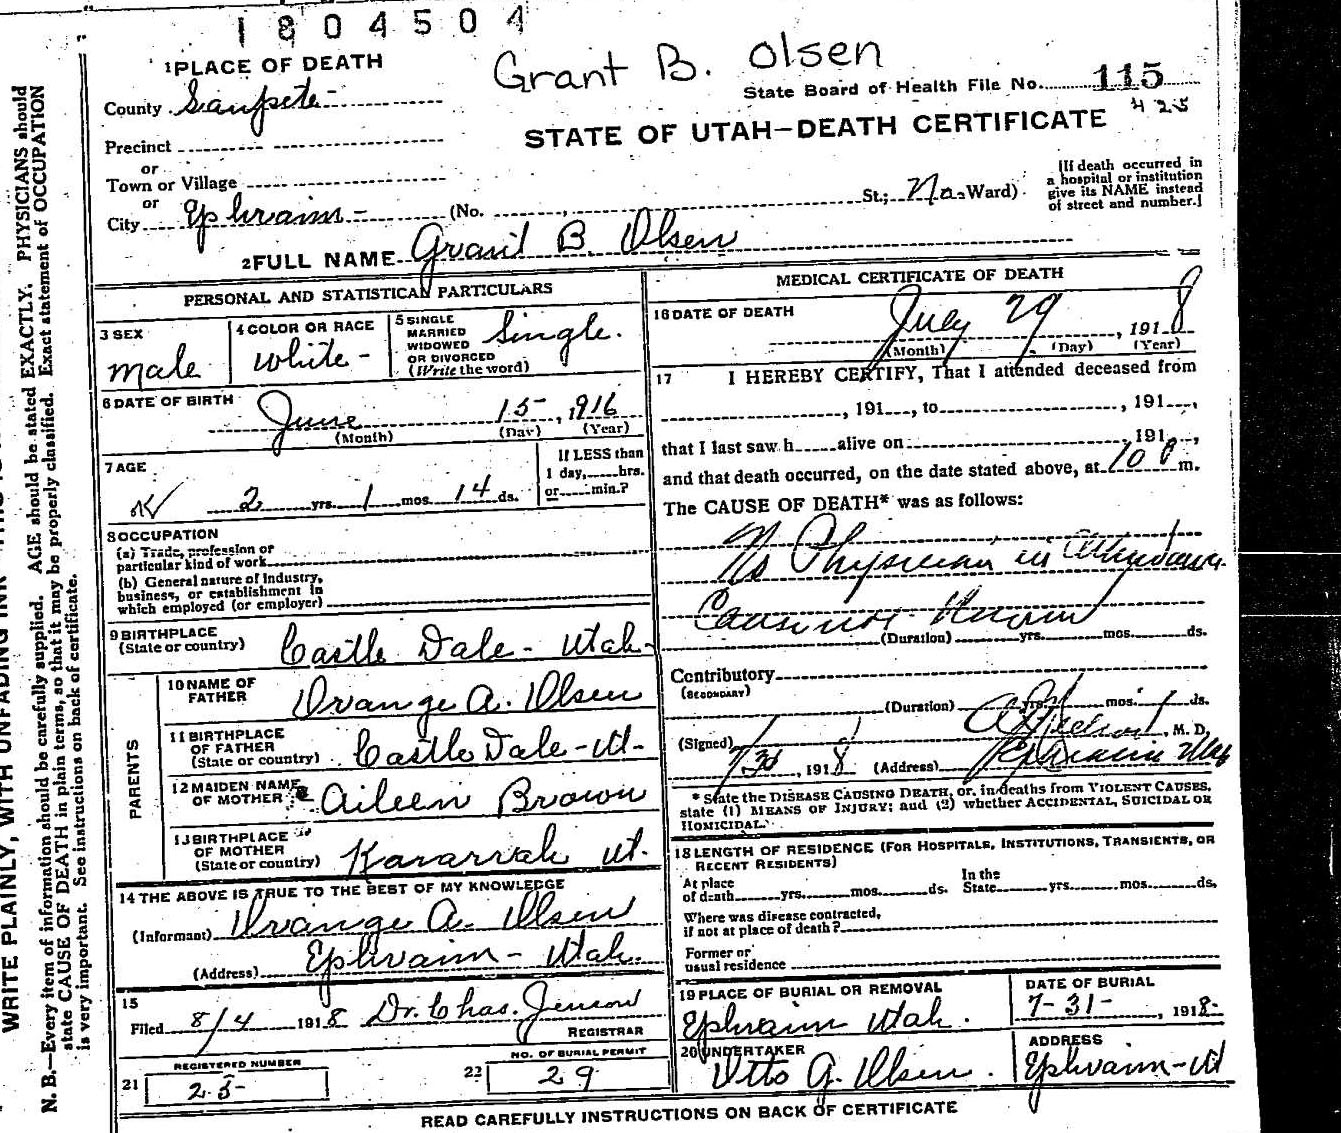 1804504
Grant B. Olsen
1 PLACE OF DEATH
County Sanpete
State Board of Health File No. 115
425
STATE OF UTAH—DEATH CERTIFICATE
Precinct
or
Town or Village
or
City Ephraim (No. St.; No. Ward)
[If death occurred in
a hospital or institution
give its NAME instead
of street and number.]
2 FULL NAME Grant B. Olsen
PERSONAL AND STATISTICAL PARTICULARS
3 SEX
male
4 COLOR OR RACE
white
5 SINGLE
MARRIED
WIDOWED
OR DIVORCED
(Write the word)
Single.
6 DATE OF BIRTH
June 15, 1916
(Month) (Day) (Year)
7 AGE
2 yrs. 1 mos. 14 ds.
If LESS than
1 day, hrs.
or min.?
8 OCCUPATION
(a) Trade, profession or
particular kind of work
(b) General nature of Industry,
business, or establishment in
which employed (or employer)
9 BIRTHPLACE
(State or country)
Castle Dale - Utah-
PARENTS
10 NAME OF
FATHER
Orange A. Olsen
11 BIRTHPLACE
OF FATHER
(State or country)
Castle Dale - Ut-
12 MAIDEN NAME
OF MOTHER
Aileen Brown
13 BIRTHPLACE
OF MOTHER
(State or country)
Kanarrah Ut.
14 THE ABOVE IS TRUE TO THE BEST OF MY KNOWLEDGE
(Informant) Orange A. Olsen
(Address) Ephraim - Utah.
15
Filed 8/4 1918 Dr. Chas. Jenson
REGISTRAR
REGISTERED NUMBER
21 25
NO. OF BURIAL PERMIT
22 29
MEDICAL CERTIFICATE OF DEATH
16 DATE OF DEATH
July 29, 1918
(Month) (Day) (Year)
17 I HEREBY CERTIFY, That I attended deceased from
, 191 , to , 191 ,
that I last saw h alive on , 191 ,
and that death occurred, on the date stated above, at 10 P m.
The CAUSE OF DEATH* was as follows:
No Physician in Attendance
Cause not Known
(Duration) yrs. mos. ds.
Contributory
(SECONDARY)
(Duration) yrs. mos. ds.
(Signed) , M. D.
7/30, 1918 (Address) Ephraim Utah
* State the DISEASE CAUSING DEATH, or, in deaths from VIOLENT CAUSES,
state (1) MEANS OF INJURY; and (2) whether ACCIDENTAL, SUICIDAL OR
HOMICIDAL.
18 LENGTH OF RESIDENCE (FOR HOSPITALS, INSTITUTIONS, TRANSIENTS, OR
RECENT RESIDENTS)
At place
of death yrs. mos. ds.
In the
State yrs. mos. ds.
Where was disease contracted,
if not at place of death?
Former or
usual residence
19 PLACE OF BURIAL OR REMOVAL
Ephraim Utah.
DATE OF BURIAL
7-31-, 1918-
20 UNDERTAKER
Otto G. Olsen.
ADDRESS
Ephraim-Ut
READ CAREFULLY INSTRUCTIONS ON BACK OF CERTIFICATE
WRITE PLAINLY, WITH UNFADING INK
N. B.—Every item of information should be carefully supplied. AGE should be stated EXACTLY. PHYSICIANS should
state CAUSE OF DEATH in plain terms, so that it may be properly classified. Exact statement of OCCUPATION
is very important. See instructions on back of certificate.